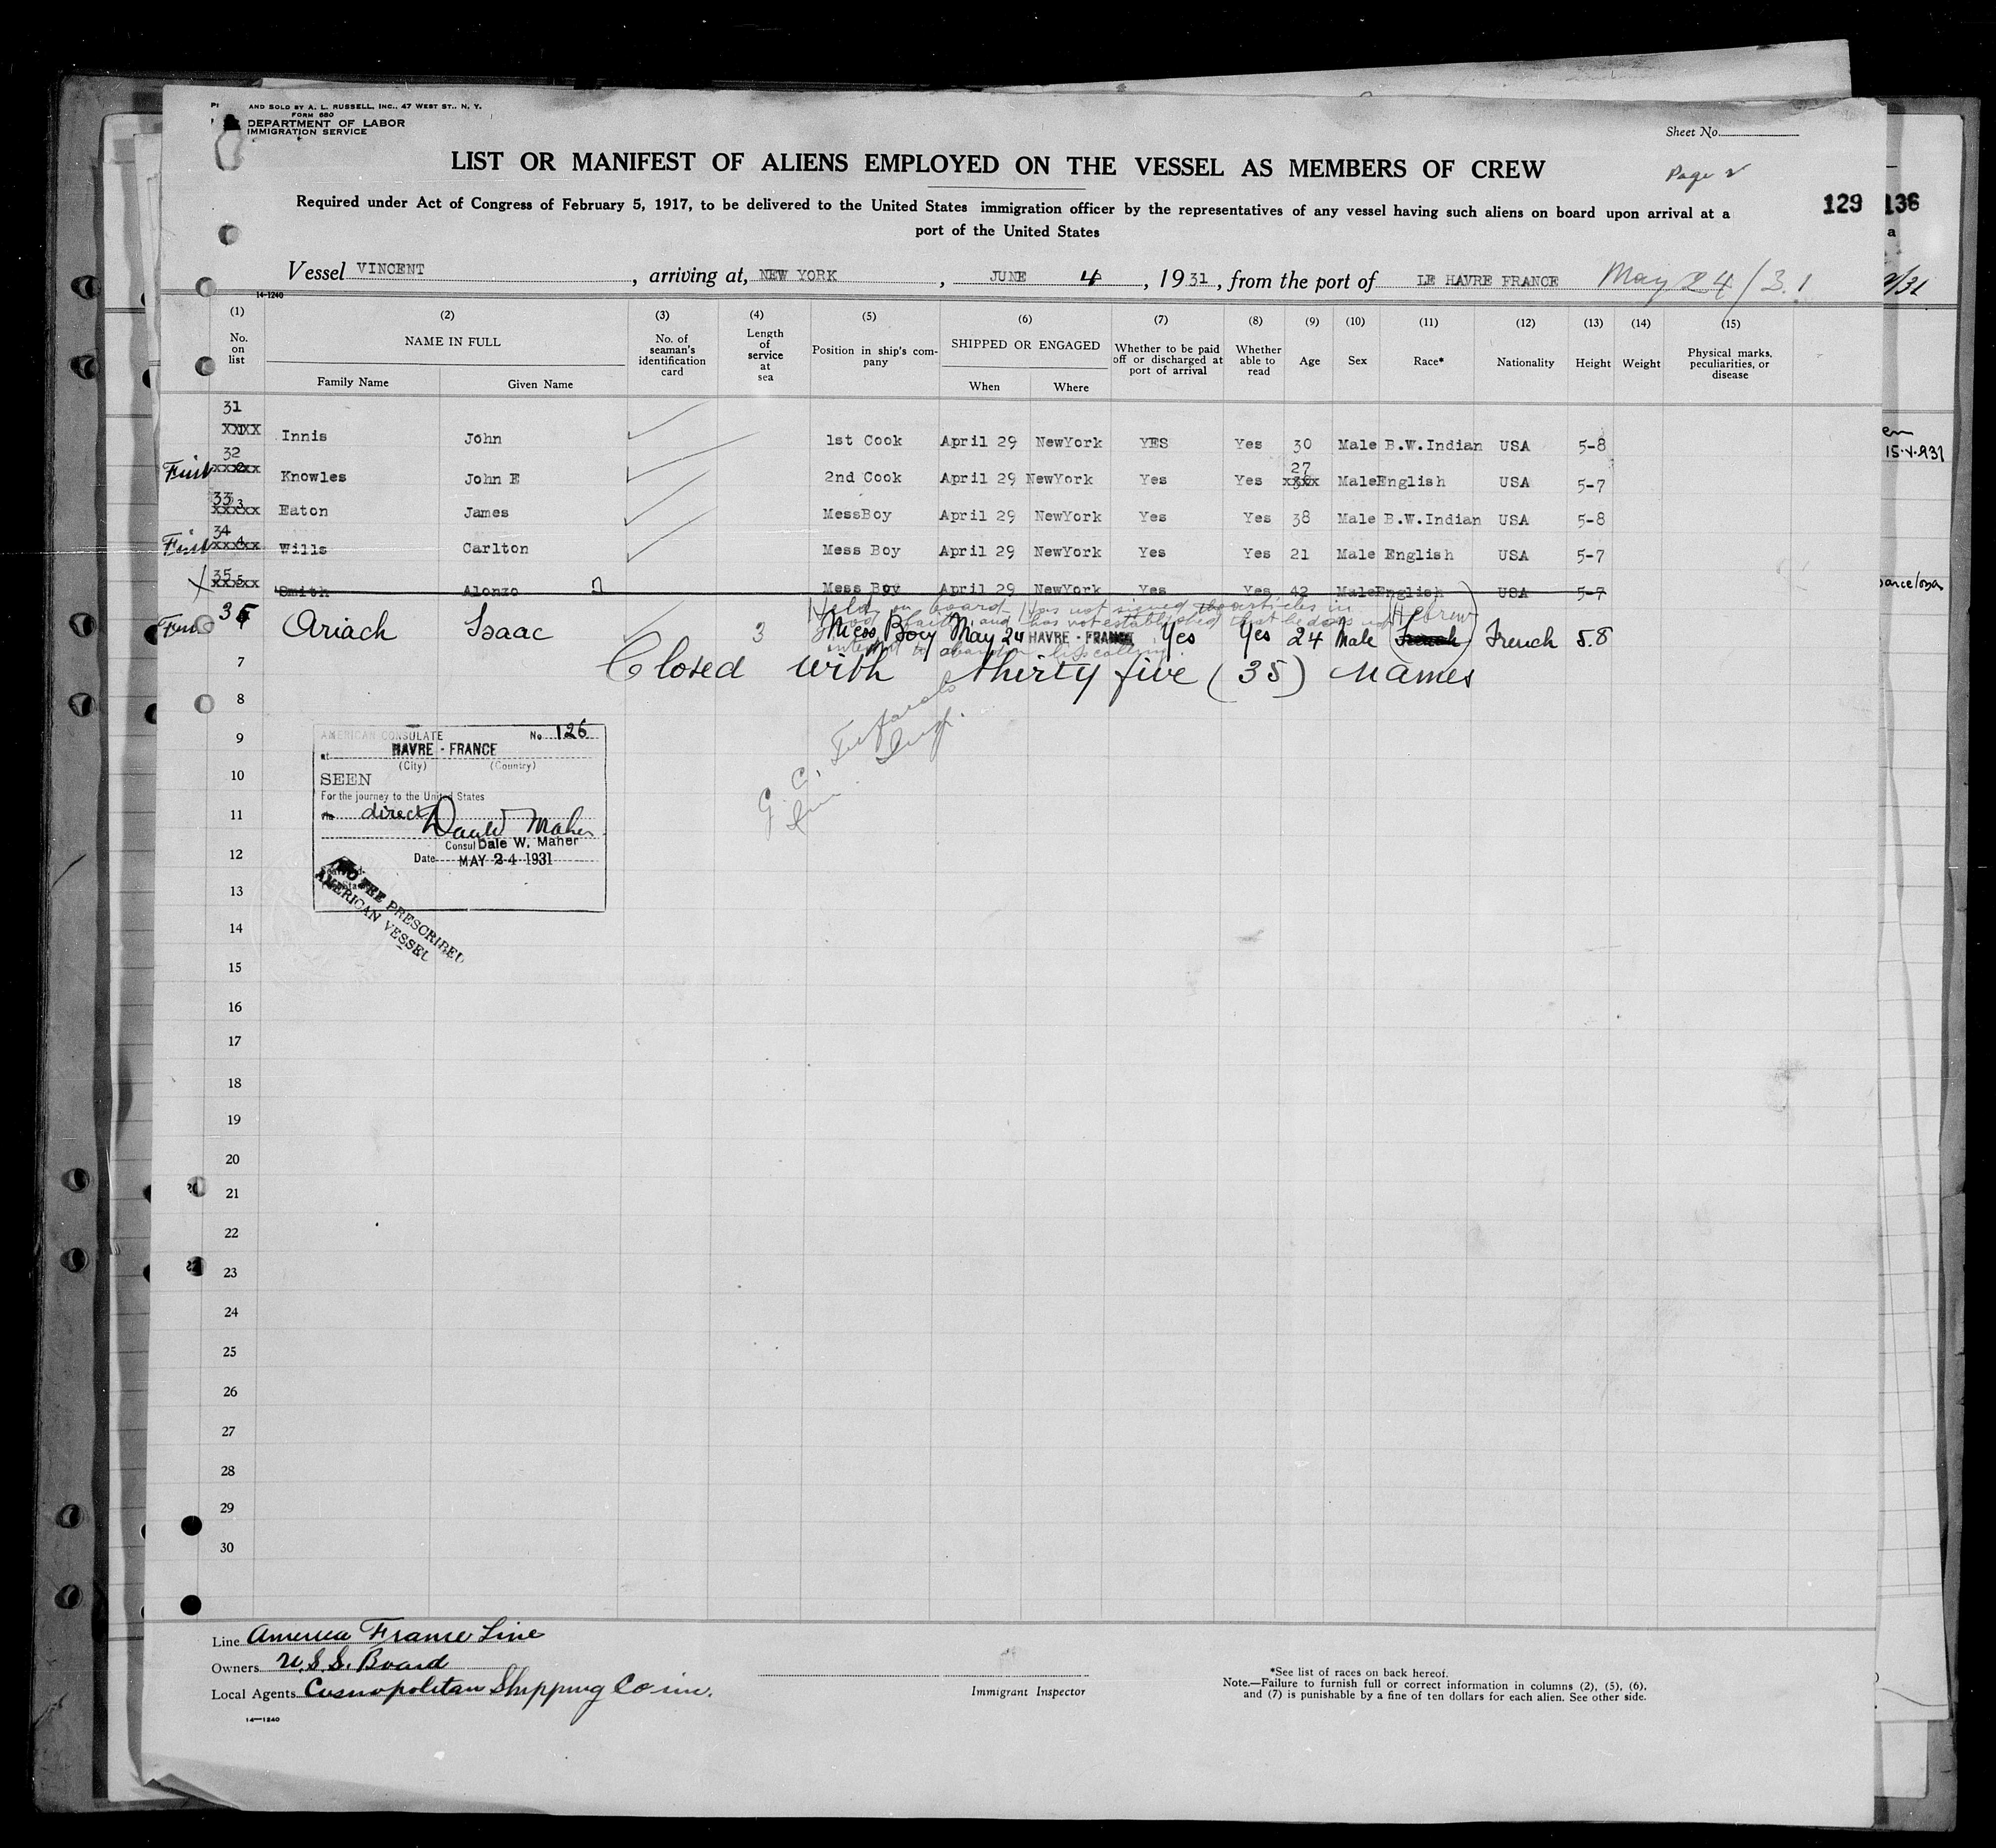 AND SOLD BY A. L. RUSSELL, INC., 47 WEST ST., N. Y.
FORM 680
DEPARTMENT OF LABOR
IMMIGRATION SERVICE
Sheet No.
LIST OR MANIFEST OF ALIENS EMPLOYED ON THE VESSEL AS MEMBERS OF CREW
Page 2
Required under Act of Congress of February 5, 1917, to be delivered to the United States immigration officer by the representatives of any vessel having such aliens on board upon arrival at a
port of the United States
129 136
a
Vessel VINCENT, arriving at, NEW YORK, JUNE 4, 1931, from the port of LE HAVRE FRANCE May 24/31
14-1240
(1) No. on list
(2) NAME IN FULL
Family Name Given Name
(3) No. of seaman's identification card
(4) Length of service at sea
(5) Position in ship's company
(6) SHIPPED OR ENGAGED
When Where
(7) Whether to be paid off or discharged at port of arrival
(8) Whether able to read
(9) Age
(10) Sex
(11) Race*
(12) Nationality
(13) Height
(14) Weight
(15) Physical marks, peculiarities, or disease
31 Innis John 1st Cook April 29 NewYork YES Yes 30 Male B.W.Indian USA 5-8
First 32 Knowles John E 2nd Cook April 29 NewYork Yes Yes 27 Male English USA 5-7
33 Eaton James MessBoy April 29 NewYork Yes Yes 38 Male B.W.Indian USA 5-8
First 34 Wills Carlton Mess Boy April 29 NewYork Yes Yes 21 Male English USA 5-7
X 35 Smith Alonzo Mess Boy April 29 NewYork Yes Yes 42 Male English USA 5-7
Held on board. Has not signed articles in
good faith, and has not established that he does not
intend to abandon his calling.
First 35 Ariach Isaac 3 Mess Boy May 24 HAVRE - FRANCE Yes Yes 24 Male Hebrew French French 5.8
7 Closed with thirty five (35) names
8
9
10
11
12
13
14
15
16
17
18
19
20
21
22
23
24
25
26
27
28
29
30
AMERICAN CONSULATE No. 126
at HAVRE - FRANCE
(City) (Country)
SEEN
For the journey to the United States
direct
Consul Dale W. Maher
Date MAY 24 1931
NO FEE PRESCRIBED
AMERICAN VESSEL
Line America France Line
Owners U.S.S. Board
Local Agents Cosmopolitan Shipping Co inc.
Immigrant Inspector
*See list of races on back hereof.
Note.—Failure to furnish full or correct information in columns (2), (5), (6),
and (7) is punishable by a fine of ten dollars for each alien. See other side.
14—1240